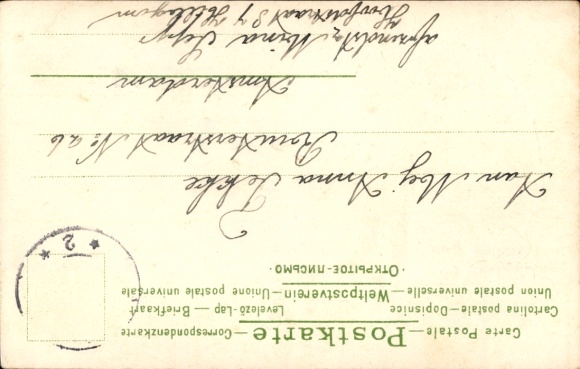 Carte Postale — Postkarte — Correspondenzkarte
Cartolina postale — Dopisnice Levelező-Lap — Briefkaart
Union postale universelle — Weltpostverein — Unione postale universale
· ОТКРЫТОЕ-ПИСЬМО ·
* 2 *
Aan Mej Anna Jekke
Straat No 26
Amsterdam
afzendster Mina Sepp
Hoofdstraat 87 Hillegom